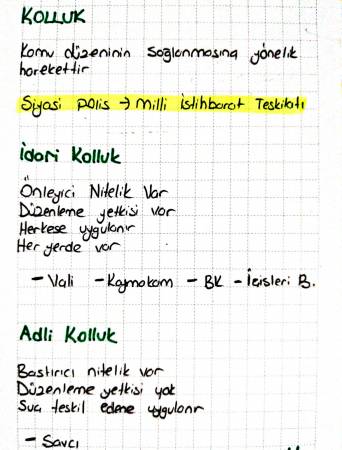 KOLLUK
Kamu düzeninin sağlanmasına yönelik
harekettir
Siyasi polis → Milli İstihbarat Teşkilatı
İdari Kolluk
Önleyici Nitelik Var
Düzenleme yetkisi var
Herkese uygulanır
Her yerde var
- Vali - Kaymakam - BK - İçişleri B.
Adli Kolluk
Bastırıcı nitelik var
Düzenleme yetkisi yok
Suç teşkil edene uygulanır
- Savcı